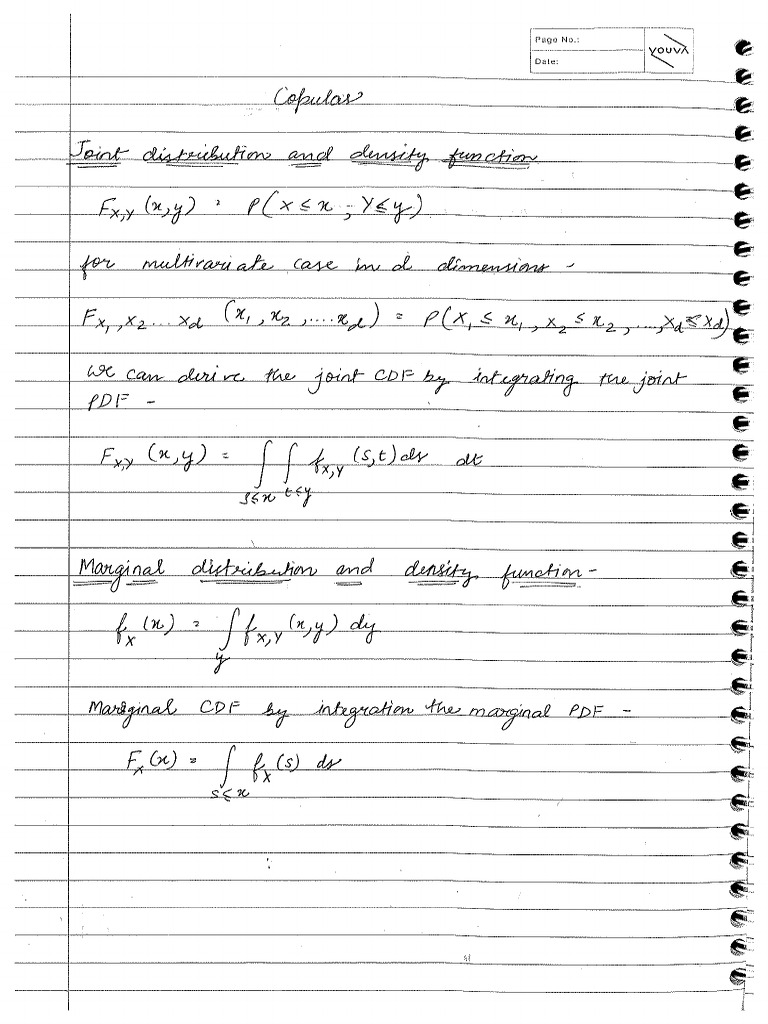 Page No.:
Date:
YOUVA
Copulas
Joint distribution and density function
F_{X,Y} (x,y) = P(X ≤ x, Y ≤ y)
for multivariate case in d dimensions -
F_{X_1, X_2 ... X_d} (x_1, x_2, .... x_d) = P(X_1 ≤ x_1, X_2 ≤ x_2, ..., X_d ≤ x_d)
We can derive the joint CDF by integrating the joint
PDF -
F_{X,Y} (x,y) = ∫_{s≤x} ∫_{t≤y} f_{X,Y} (s,t) ds dt
Marginal distribution and density function -
f_X (x) = ∫_y f_{X,Y} (x,y) dy
Marginal CDF by integration the marginal PDF -
F_X (x) = ∫_{s≤x} f_X (s) ds